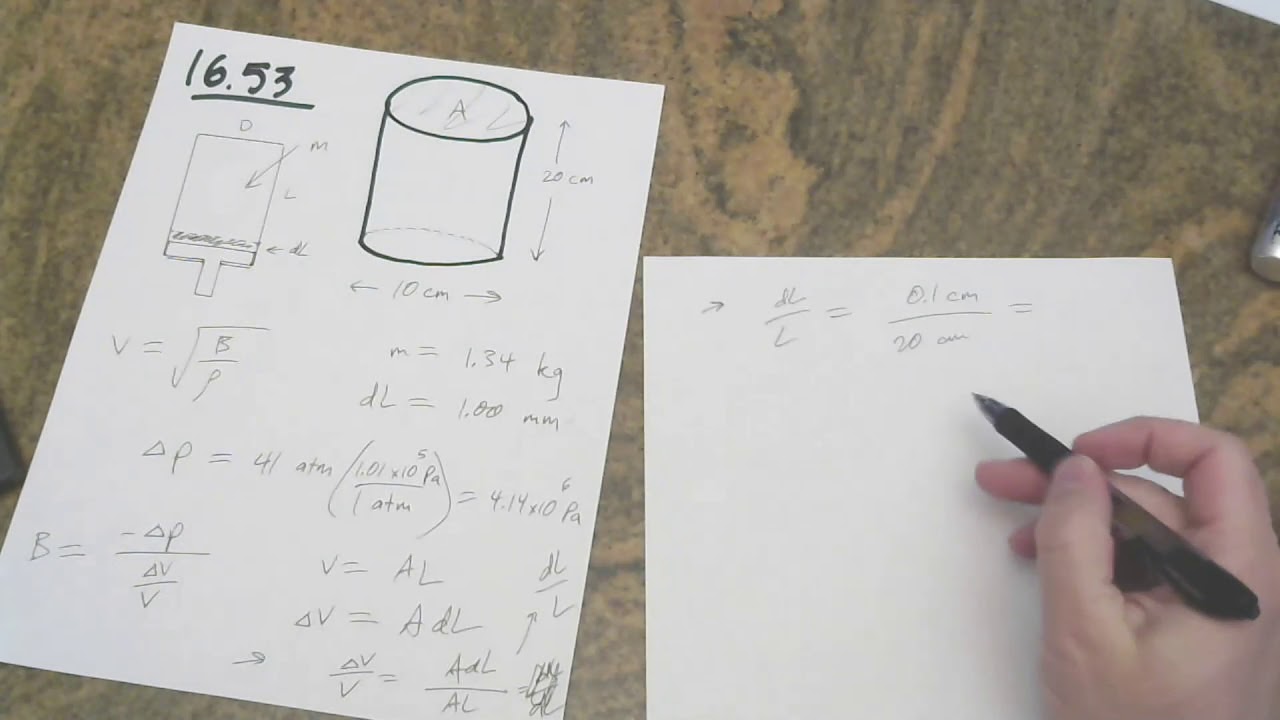 16.53
D
A
m
20 cm
L
← dL
← 10 cm →
V = √(B/ρ)
m = 1.34 kg
dL = 1.00 mm
ΔP = 41 atm (1.01 × 10⁵ Pa / 1 atm) = 4.14 × 10⁶ Pa
B = -ΔP / (ΔV/V)
V = AL
dL/L
ΔV = A dL
→ ΔV/V = AdL/AL =
→ dL/L = 0.1 cm / 20 cm =